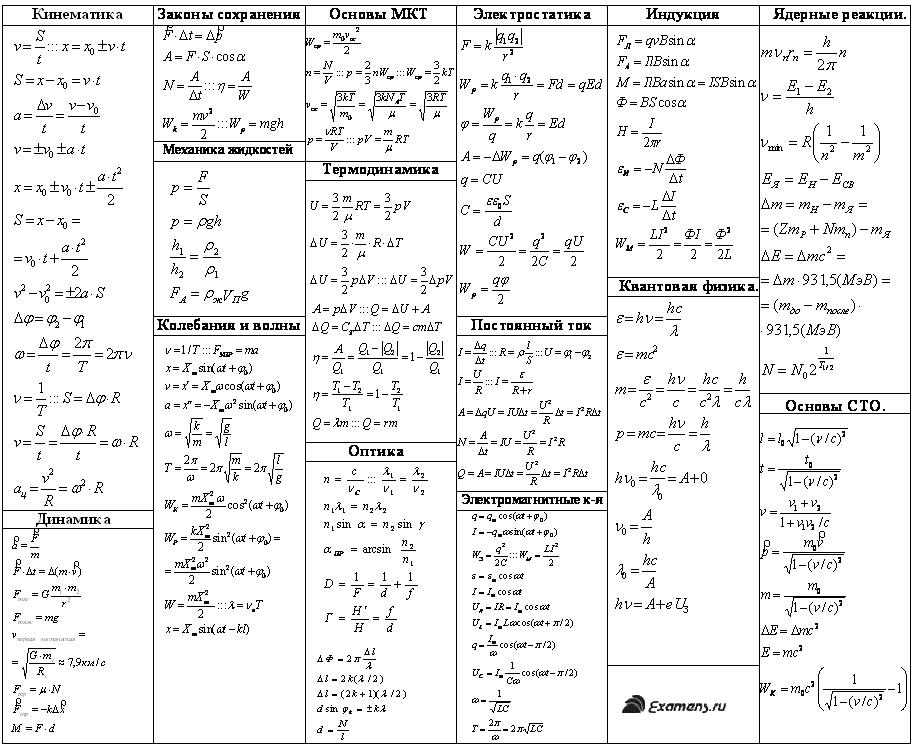 Кинематика
v = S/t ::: x = x₀ ± v·t
S = x − x₀ = v·t
a = Δv/t = (v − v₀)/t
v = ±v₀ ± a·t
x = x₀ ± v₀·t ± a·t²/2
S = x − x₀ =
= v₀·t + a·t²/2
v² − v₀² = ±2a·S
Δφ = φ₂ − φ₁
ω = Δφ/t = 2π/T = 2πν
ν = 1/T ::: S = Δφ·R
v = S/t = Δφ·R/t = ω·R
aц = v²/R = ω²·R
Динамика
a = F/m
F·Δt = Δ(m·v)
F = G m₁·m₂/r²
F = mg
v первая космическая =
= √(G·m/R) ≈ 7,9км/с
F = μ·N
F = −kΔx
M = F·d
Законы сохранения
F·Δt = Δp
A = F·S·cosα
N = A/Δt ::: η = A/W
Wk = mv²/2 ::: Wp = mgh
Механика жидкостей
p = F/S
p = ρgh
h₁/h₂ = ρ₂/ρ₁
F_A = ρж Vп g
Колебания и волны
ν = 1/T ::: Fмвр = ma
x = Xm sin(ωt + φ₀)
v = x' = Xm ω cos(ωt + φ₀)
a = x'' = −Xm ω² sin(ωt + φ₀)
ω = √(k/m) = √(g/l)
T = 2π/ω = 2π√(m/k) = 2π√(l/g)
W_K = mX²m ω/2 cos²(ωt + φ₀)
W_P = kX²m/2 sin²(ωt + φ₀) =
= mX²m ω²/2 sin²(ωt + φ₀)
W = mX²m/2 ::: λ = vвT
x = Xm sin(ωt − kl)
Основы МКТ
Wср = m₀vос²/2
n = N/V ::: p = 2/3 nWср ::: Wср = 3/2 kT
vос = √(3kT/m₀) = √(3kN_A T/μ) = √(3RT/μ)
p = νRT/V ::: pV = m/μ RT
Термодинамика
U = 3/2 m/μ RT = 3/2 pV
ΔU = 3/2 · m/μ · R · ΔT
ΔU = 3/2 pΔV ::: ΔU = 3/2 ΔpV
A = pΔV ::: Q = ΔU + A
ΔQ = CΔT ::: ΔQ = cmΔT
η = A/Q₁ = (Q₁ − |Q₂|)/Q₁ = 1 − |Q₂|/Q₁
η = (T₁ − T₂)/T₁ = 1 − T₂/T₁
Q = λm ::: Q = rm
Оптика
n = c/vc ::: λ₁/v₁ = λ₂/v₂
n₁λ₁ = n₂λ₂
n₁ sin α = n₂ sin γ
αпр = arcsin n₂/n₁
D = 1/F = 1/d + 1/f
Γ = H'/H = f/d
ΔΦ = 2π Δl/λ
Δl = 2k(λ/2)
Δl = (2k + 1)(λ/2)
d sin φk = ±kλ
d = N/l
Электростатика
F = k |q₁q₂|/r²
Wp = k q₁·q₂/r = Fd = qEd
φ = Wp/q = k q/r = Ed
A = −ΔWp = q(φ₁ − φ₂)
q = CU
C = εε₀S/d
W = CU²/2 = q²/2C = qU/2
Wp = qφ/2
Постоянный ток
I = Δq/Δt ::: R = ρ l/S ::: U = φ₁ − φ₂
I = U/R ::: I = ε/(R + r)
A = ΔqU = IUΔt = U²/R Δt = I²RΔt
N = A/Δt = IU = U²/R = I²R
Q = A = IUΔt = U²/R Δt = I²RΔt
Электромагнитные к-я
q = qm cos(ωt + φ₀)
I = −qmω sin(ωt + φ₀)
Wэ = q²/2C ::: Wм = LI²/2
s = sm cosωt
I = Im cosωt
U_R = IR = Im cosωt
U_L = ImLω cos(ωt + π/2)
q = Im/ω cos(ωt − π/2)
U_C = Im 1/Cω cos(ωt − π/2)
ω = 1/√LC
T = 2π/ω = 2π√LC
Индукция
Fл = qvB sinα
F_A = IlB sinα
M = IlBa sinα = ISB sinα
Φ = BS cosα
H = I/2πr
εи = −N ΔΦ/Δt
εc = −L ΔI/Δt
Wм = LI²/2 = ΦI/2 = Φ²/2L
Квантовая физика.
ε = hν = hc/λ
ε = mc²
m = ε/c² = hν/c² = hc/c²λ = h/cλ
p = mc = hν/c = h/λ
hν₀ = hc/λ₀ = A + 0
ν₀ = A/h
λ₀ = hc/A
hν = A + eU₃
Examens.ru
Ядерные реакции.
mvₙrₙ = h/2π n
ν = (E₁ − E₂)/h
νmin = R(1/n² − 1/m²)
Eя = Eн − Eсв
Δm = mн − mя =
= (Zmp + Nmn) − mя
ΔE = Δmc² =
= Δm·931,5(МэВ) =
= (mдо − mпосле)·
·931,5(МэВ)
N = N₀2^(1/T1/2)
Основы СТО.
l = l₀√(1 − (v/c)²)
t = t₀/√(1 − (v/c)²)
v = (v₁ + v₂)/(1 + v₁v₂/c)
p = m₀v/√(1 − (v/c)²)
m = m₀/√(1 − (v/c)²)
ΔE = Δmc²
E = mc²
W_K = m₀c²(1/√(1 − (v/c)²) − 1)